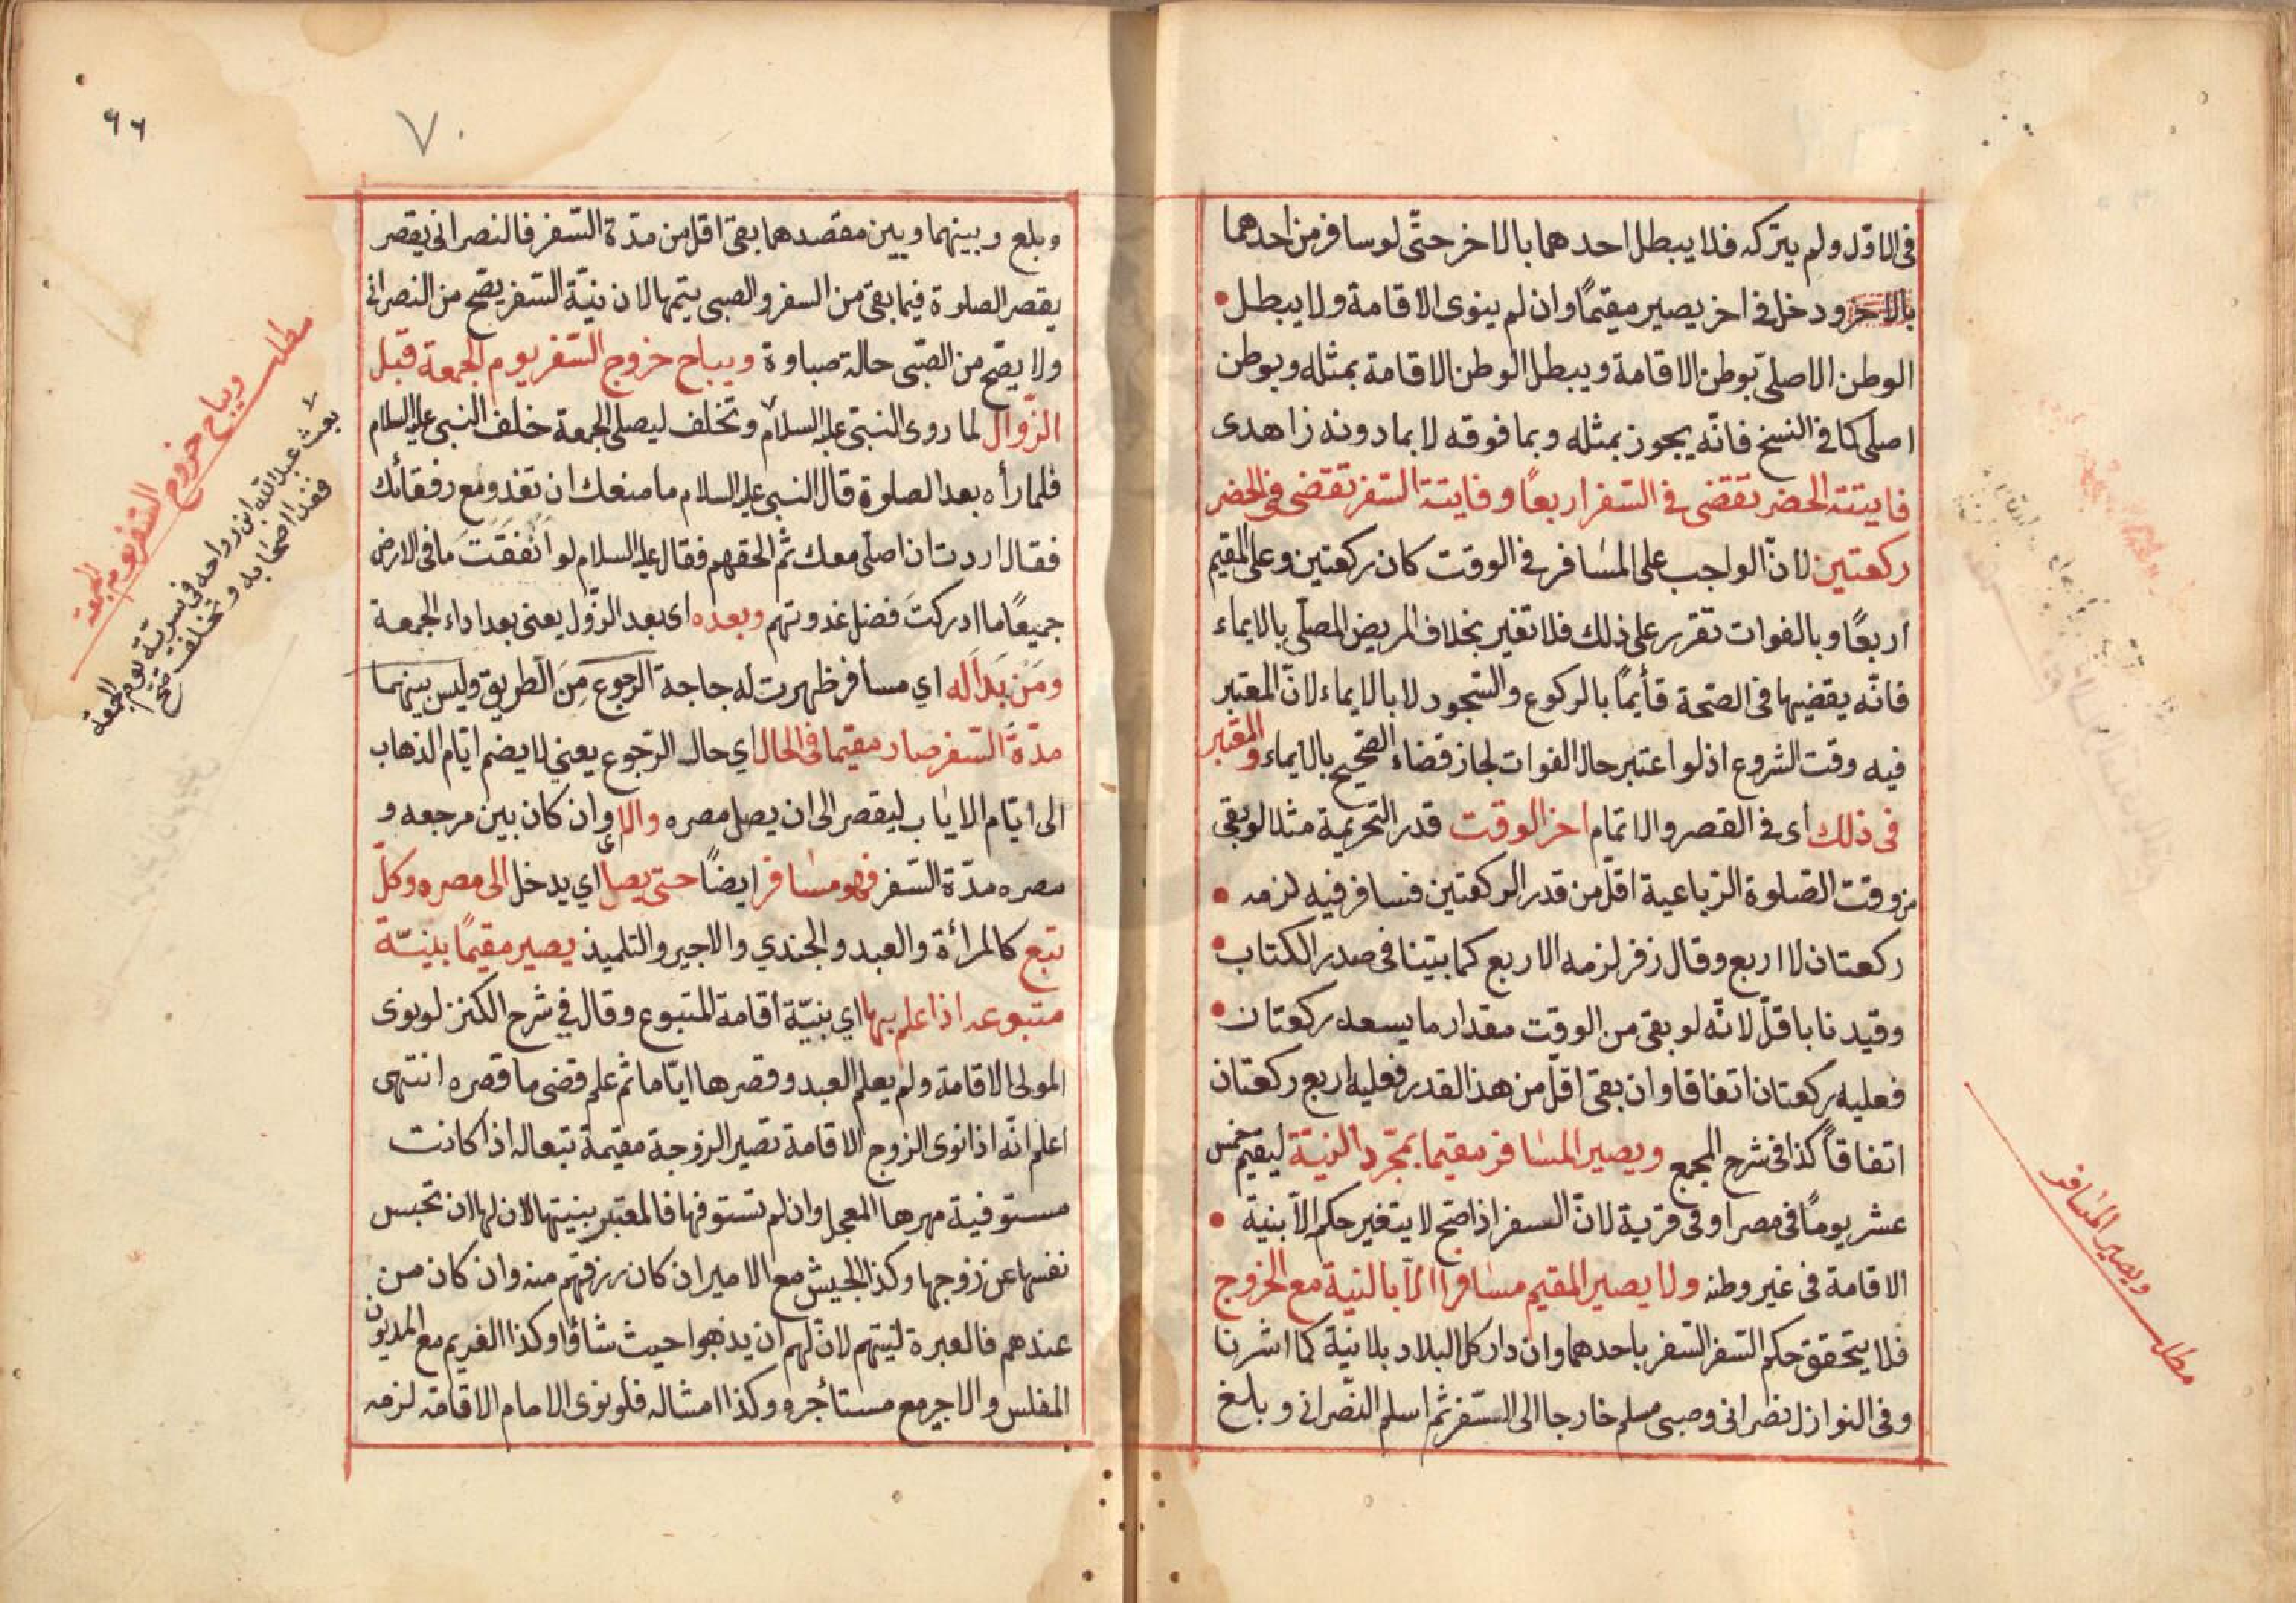 فى الاوّل ولم يتركه فلا يبطل احدهما بالاخر حتّى لو سافر من احدهما
بالاخر ودخل فى اخر يصير مقيمًا وان لم ينوى الاقامة ولا يبطل
الوطن الاصلىّ بوطن الاقامة ويبطل الوطن الاقامة بمثله وبوطن
اصلى كما فى النسخ فانّه يجوز بمثله وبما فوقه لا بما دونه زاهدى
فايتة الحضر تقضى فى السّفر اربعًا وفايتة السّفر تقضى فى الحضر
ركعتين لانّ الواجب على المسافر فى الوقت كان ركعتين وعلى المقيم
اربعًا وبالفوات تقرر على ذلك فلا تغير بخلاف المريض المصلّى بالايماء
فانّه يقضيها فى الصّحة قأيمًا بالركوع والسّجود لا بالايماء لانّ المعتبر
فيه وقت الشروع اذ لو اعتبر حال الفوات لجاز قضاء الصّحيح بالايماء والمعتبر
فى ذلك أى فى القصر والاتمام اخر الوقت قدر التحريمة مثلا لو بقى
من وقت الصّلوة الرّباعية اقلّ من قدر الركعتين فسافر فيه لزمه
ركعتان لا اربع وقال زفر لزمه الاربع كما بيّنا فى صدر الكتاب
وقيدنا باقلّ لانّه لو بقى من الوقت مقدار ما يسعه ركعتان
فعليه ركعتان اتفاقا وان بقى اقلّ من هذ القدر فعليه اربع ركعتان
اتفاقاً كذا فى شرح المجمع ويصير المسافر مقيما بمجّرد النيّة ليقيم خمس
عشر يومًا فى مصر او فى قرية لانّ السفر اذا صّح لا يتغير حكم الاّ بنية
الاقامة فى غير وطنه ولا يصير المقيم مسافرا الاّ بالنية مع الخروج
فلا يتحقق حكم السّفر السّفر باحدهما وان دار كل البلاد بلا نية كما اشرنا
وفى النوازل نصرانى وصبى مسلم خارجا الى السّفر ثم اسلم النّصرانى وبلغ
ويصير المسافر
مطلب
٦٦
٧٠
وبلع وبينهما وبين مقصدهما بقى اقل من مدّة السّفر فالنصرانى يقصر
يقصر الصلوة فيما بقى من السفر والصبى يتمها لان نيّة السّفر يصّح من النصرانى
ولا يصّح من الصّبى حالة صباوة ويباح خروج السّفر يوم الجمعة قبل
الزّوال لما روى النبىّ عليه السلام وتخلف ليصلى الجمعة خلف النبى عليه السلام
فلما رأه بعد الصلوة قال النبى عليه السلام ما منعك ان تغذو مع رفقائك
فقال اردت ان اصلّى معك ثم الحقهم فقال عليه السلام لو انفقت ما فى الارض
جميعًا ما ادركت فضل غدوتهم وبعده اى بعد الزّول يعنى بعد اداء الجمعة
ومن بدا له اي مسافر ظهرت له حاجة الرجوع من الطريق وليس بينهما
مدّة السّفر صار مقيما فى الحال اي حال الرّجوع يعني لا يضم ايّام الذهاب
الى ايّام الاياب ليقصر الى ان يصل مصره والا اى وان كان بين مرجعه و
مصره مدّة السّفر فهو مسافر ايضًا حتى يصل اي يدخل الى مصره وكلّ
تبع كالمرأة والعبد والجندي والاجير والتلميذ يصير مقيمًا بنيّة
متبوعه اذا علم بها اي بنيّة اقامة المتبوع وقال فى شرح الكنز لو نوى
المولى الاقامة ولم يعلم العبد وقصرها ايّاما ثم علم قضى ما قصره انتهى
اعلم انّه اذا نوى الزوج الاقامة تصير الزوجة مقيمة تبعا له اذا كانت
مستوفية مهرها المعجل وان لم تستوفها فالمعتبر بنيتها لان لها ان تحبس
نفسها عن زوجها وكذا الجيش مع الامير ان كان رزقهم منه وان كان من
عندهم فالعبرة لنيتهم لانّ لهم ان يذهبوا حيث شاؤا وكذا الغريم مع المديون
المفلس والاجير مع مستأجره وكذا امثاله فلو نوى الامام الاقامة لزمه
مطلب
ويباح خروج السّفر يوم الجمعة
بعث عبد الله ابن رواحه فى سريّة يوم الجمعة
فغذا اصحابه وتخلف صح